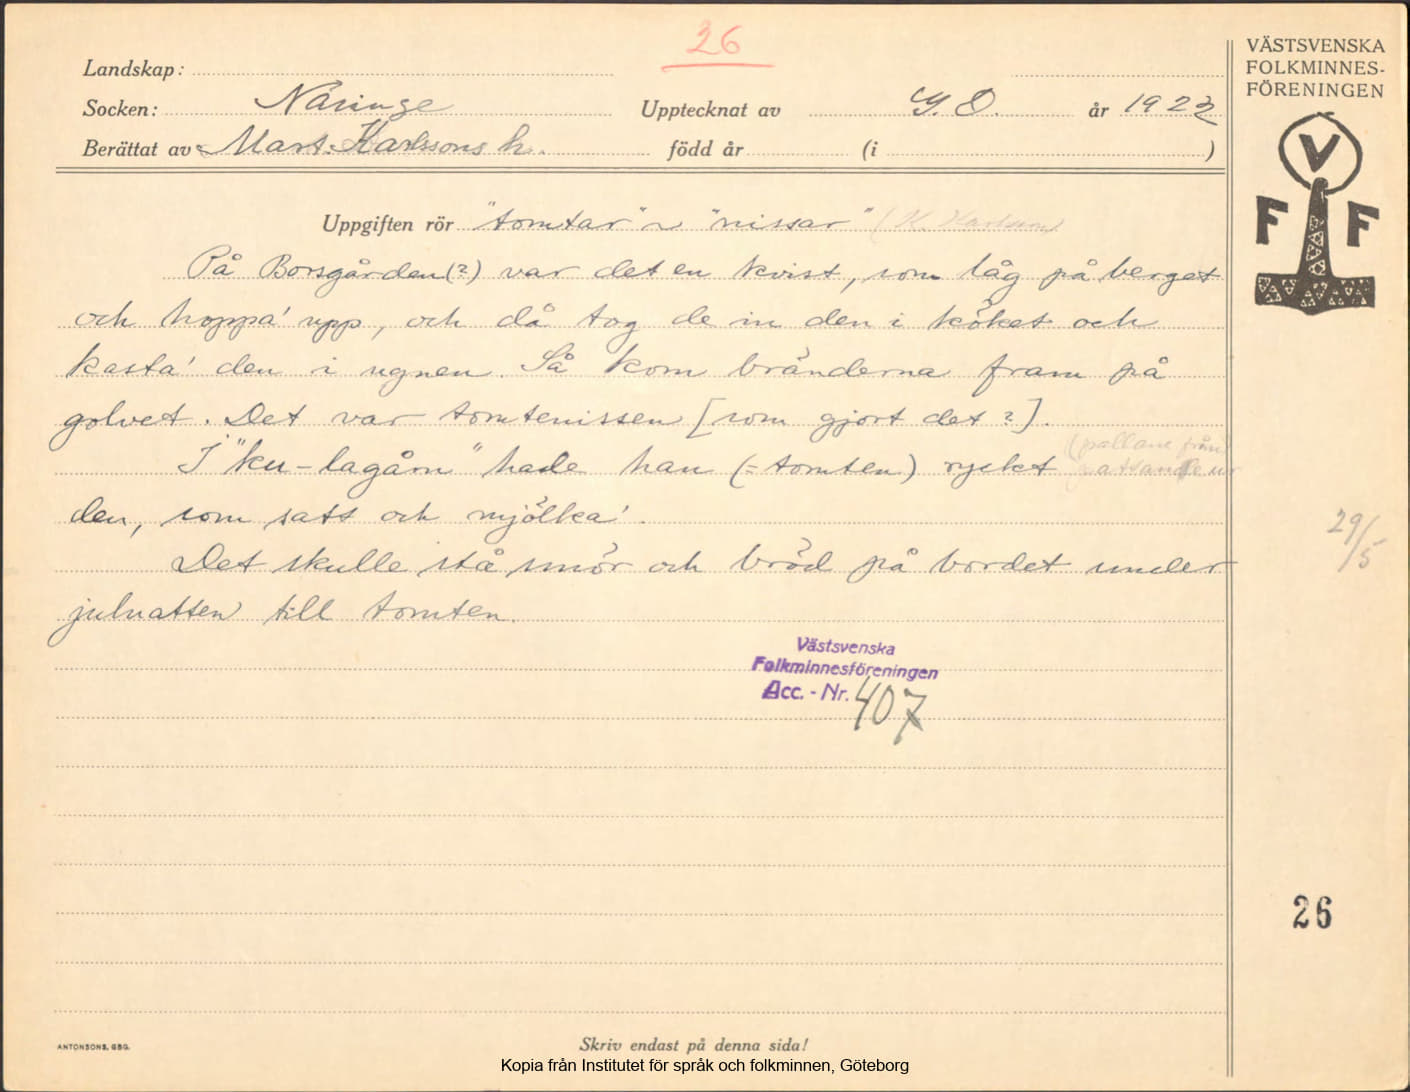 26
VÄSTSVENSKA
FOLKMINNES-
FÖRENINGEN
Landskap:
Socken: Näringe Upptecknat av G. O. år 1922
Berättat av Mart. Karlssons h. född år (i )
V
F F
Uppgiften rör "tomtar" ~ "nissar" (K. Karlsson)
På Borsgården(?) var det en kvist, som låg på berget
och hoppa' upp, och då tog de in den i köket och
kasta' den i ugnen. Så kom bränderna fram på
golvet. Det var tomtenissen [som gjort det?].
(pallane från
I "ku-lagårn" hade han (= tomten) ryckt
den, som satt och mjölka'.
29/5
Det skulle stå smör och bröd på bordet under
julnatten till tomten.
Västsvenska
Folkminnesföreningen
Acc. - Nr. 407
26
ANTONSONS, GBG.
Skriv endast på denna sida!
Kopia från Institutet för språk och folkminnen, Göteborg